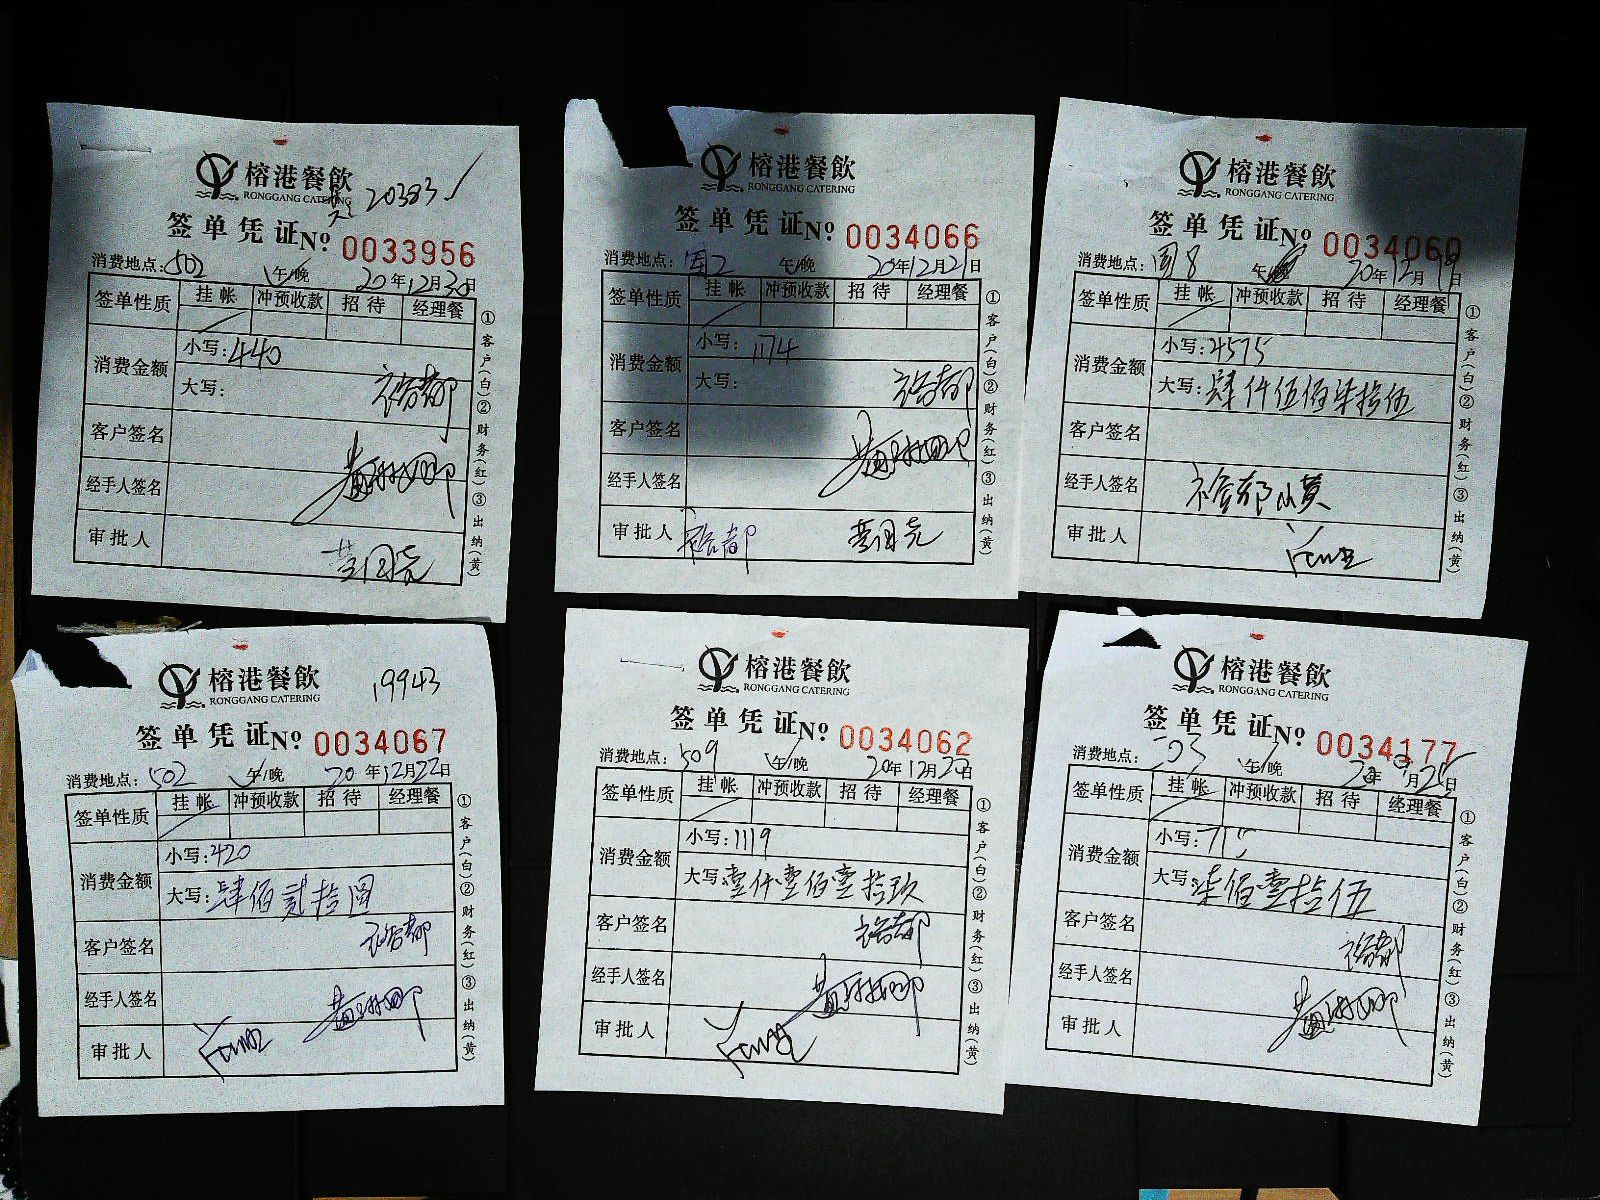 榕港餐飲
RONGGANG CATERING
20383
签单凭证№ 0033956
消费地点：502 午/晚 20年12月30日
签单性质 挂帐 冲预收款 招待 经理餐
消费金额 小写：440
大写：
客户签名
经手人签名
审批人
①客户(白)②财务(红)③出纳(黄)
榕港餐飲
RONGGANG CATERING
签单凭证№ 0034066
消费地点： 午/晚 20年12月21日
签单性质 挂帐 冲预收款 招待 经理餐
消费金额 小写：1174
大写：
客户签名
经手人签名
审批人
①客户(白)②财务(红)③出纳(黄)
榕港餐飲
RONGGANG CATERING
签单凭证№ 0034060
消费地点： 8 午 20年12月19日
签单性质 挂帐 冲预收款 招待 经理餐
消费金额 小写：4575
大写：肆仟伍佰柒拾伍
客户签名
经手人签名
审批人
①客户(白)②财务(红)③出纳(黄)
榕港餐飲
RONGGANG CATERING
19943
签单凭证№ 0034067
消费地点：502 午/晚 20年12月22日
签单性质 挂帐 冲预收款 招待 经理餐
消费金额 小写：420
大写：肆佰贰拾圆
客户签名
经手人签名
审批人
①客户(白)②财务(红)③出纳(黄)
榕港餐飲
RONGGANG CATERING
签单凭证№ 0034062
消费地点：509 午/晚 20年12月22日
签单性质 挂帐 冲预收款 招待 经理餐
消费金额 小写：1119
大写：壹仟壹佰壹拾玖
客户签名
经手人签名
审批人
①客户(白)②财务(红)③出纳(黄)
榕港餐飲
RONGGANG CATERING
签单凭证№ 0034177
消费地点：503 午/晚 20年 月25日
签单性质 挂帐 冲预收款 招待 经理餐
消费金额 小写：715
大写：柒佰壹拾伍
客户签名
经手人签名
审批人
①客户(白)②财务(红)③出纳(黄)